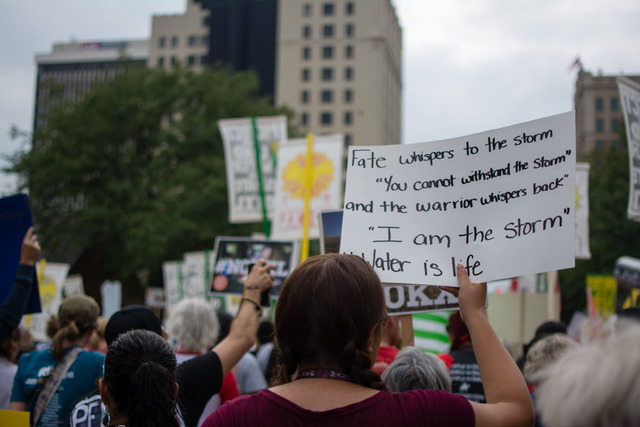 Fate whispers to the storm
"You cannot withstand the storm"
and the warrior whispers back"
"I am the storm"
Water is life